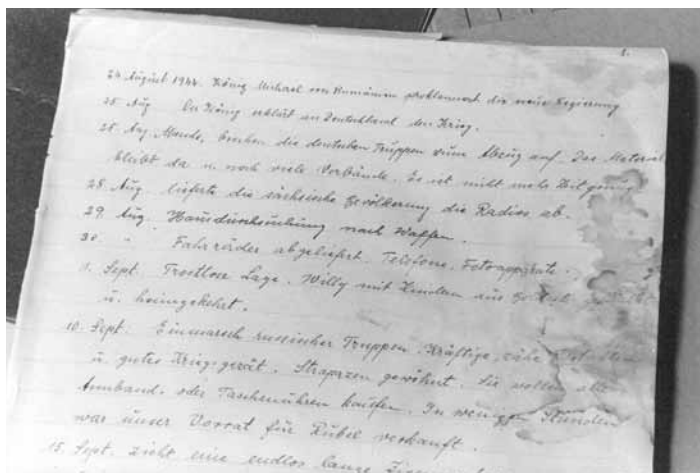 1.
24. August 1944. König Michael von Rumänien proklamiert die neue Regierung
25. Aug. Der König erklärt an Deutschland den Krieg.
25. Aug. Abends, brechen die deutschen Truppen zum Abzug auf. Das Material
bleibt da u. noch viele Verbände. Es ist nicht mehr Zeit genug
28. Aug. lieferte die sächsische Bevölkerung die Radios ab.
29. Aug. Hausdurchsuchung nach Waffen.
30. " Fahrräder abgeliefert. Telefone, Fotoapparate.
Sept. Trostlose Lage. Willy mit Kindern aus
u. heimgekehrt.
10. Sept. Einmarsch russischer Truppen. Kräftige, zähe
u. gutes Kriegsgerät. Strapazen gewöhnt. Sie wollen alle
Armband- oder Taschenuhren kaufen. In wenigen Stunden
war unser Vorrat für Rubel verkauft.
15. Sept. zieht eine endlos lange